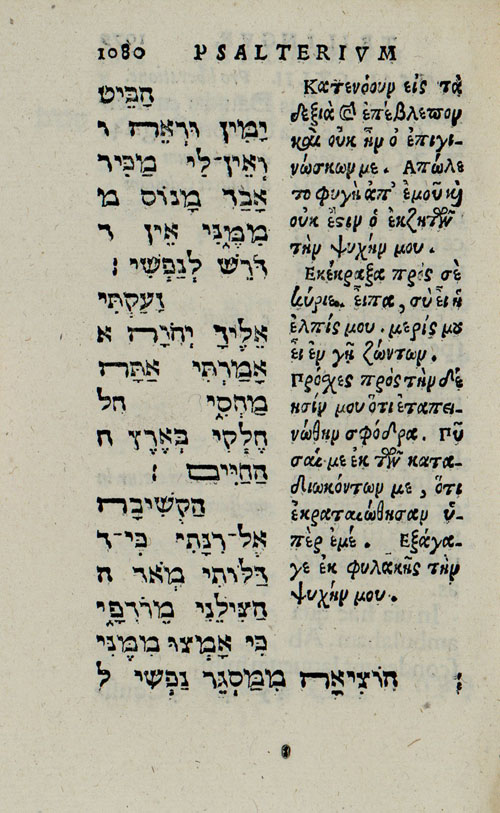 1080 PSALTERIVM
הַבֵּיט
יָמִין וּרְאֵה ו
וְאֵין־לִי מַכִּיר
אָבַד מָנוֹס מ
מִמֶּנִּי אֵין ד
דֹּרֵשׁ לְנַפְשִׁי :
זָעַקְתִּי
אֵלֶיךָ יְהֹוָה א
אָמַרְתִּי אַתָּה
מַחְסִי חל
חֶלְקִי בְּאֶרֶץ ה
הַחַיִּים :
הַקְשִׁיבָה
אֶל־רִנָּתִי כִּי־ד
דַּלּוֹתִי מְאֹד ה
הַצִּילֵנִי מֵרוֹדְפַי
כִּי אָמְצוּ מִמֶּנִּי
הוֹצִיאָה מִמַּסְגֵּר נַפְשִׁי ל
Κατενόουν εἰς τὰ
δεξιὰ καὶ ἐπέβλεπον
καὶ οὐκ ἦν ὁ ἐπιγι-
νώσκων με. Ἀπώλε
το φυγὴ ἀπ' ἐμοῦ καὶ
οὐκ ἔστιν ὁ ἐκζητῶν
τὴν ψυχήν μου.
Ἐκέκραξα πρὸς σὲ
κύριε. εἶπα, σὺ εἶ ἡ
ἐλπίς μου. μερίς μου
εἶ ἐν γῇ ζώντων.
Πρόσχες πρὸς τὴν δέ
ησίν μου ὅτι ἐταπει-
νώθην σφόδρα. Ῥῦ
σαί με ἐκ τῶν κατα-
διωκόντων με, ὅτι
ἐκραταιώθησαν ὑ-
πὲρ ἐμέ. Ἐξάγα-
γε ἐκ φυλακῆς τὴν
ψυχήν μου.